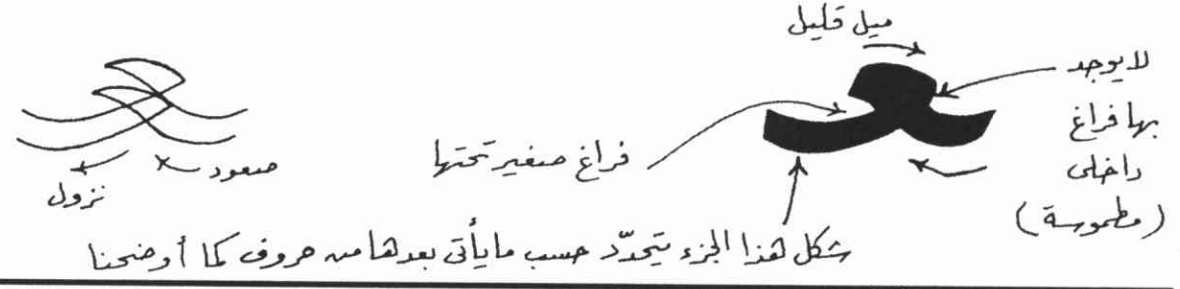 ميل قليل
لا يوجد
بها فراغ
داخلى
(مطموسة)
فراغ صغير تحتها
صعود
نزول
شكل هذا الجزء يتحدّد حسب ما يأتى بعدها من حروف كما أوضحنا